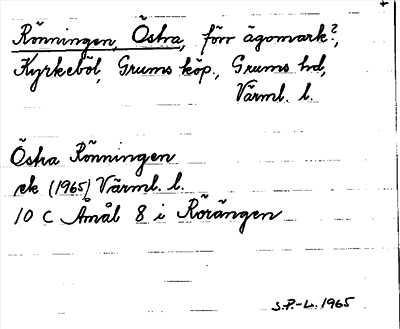 Rönningen, Östra, förr ägomark?,
Kyrkeböl, Grums köp., Grums hd,
Värml. l.
Östra Rönningen
ek (1965) Värml. l.
10 C Åmål 8 i Rörängen
S.P.-L. 1965